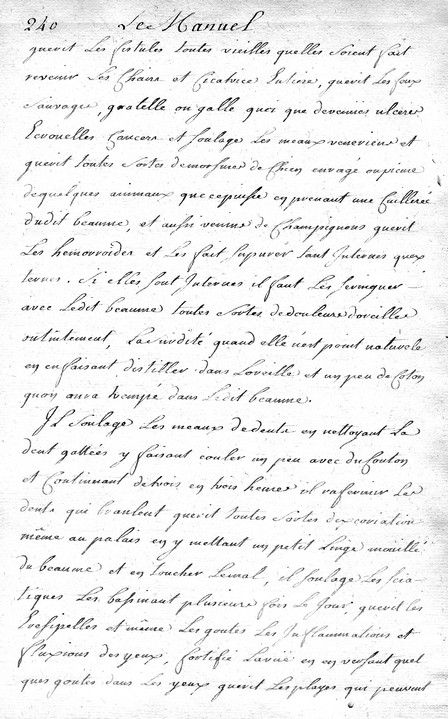 240 Le Manuel
guerit Les fistules toutes vieilles quelles soient fait
revenir Les Chairs et Cicatrice Entiere, guerit Les feux
Sauvages, gratelle ou galle quoi que devenües ulceres
Ecrouelles Cancers et soulage Les meaux veneriens et
guerit toutes Sortes de morsures de Chien enragé ou
de quelques animaux que ce puisse en prenant une Cuillerée
dudit beaume, et aussi venins de Champignons guerit
Les hemorroïdes et Les fait supurér tant Internes qu'ex
ternes. Si elles sont Internes il faut Les seringuer
avec Ledit beaume toutes Sortes de douleurs d'oreilles
ontintement, La surdité quand elle n'est point naturele
en en faisant distiller dans L'oreille et un peu de Coton
quon aura trempé dans Ledit beaume.
Il Soulage Les meaux de dents en nettoyant La
dent gattées y faisant couler un peu avec du Couton
et Continuant de trois en trois heures il rafermir Les
dents qui branlent guerit toutes Sortes dexcoriation
même au palais en y mettant un petit Linge mouillé
du beaume et en toucher Lemal, il soulage Les scia-
tiques Les bassinant plusieurs fois Le Jour, guerit Les
Eresipelles et même Les goutes Les Inflammations et
fluxions des yeux, fortifié La vüë en en versant quel
ques goutes dans Les yeux guerit Les playes qui peuvent